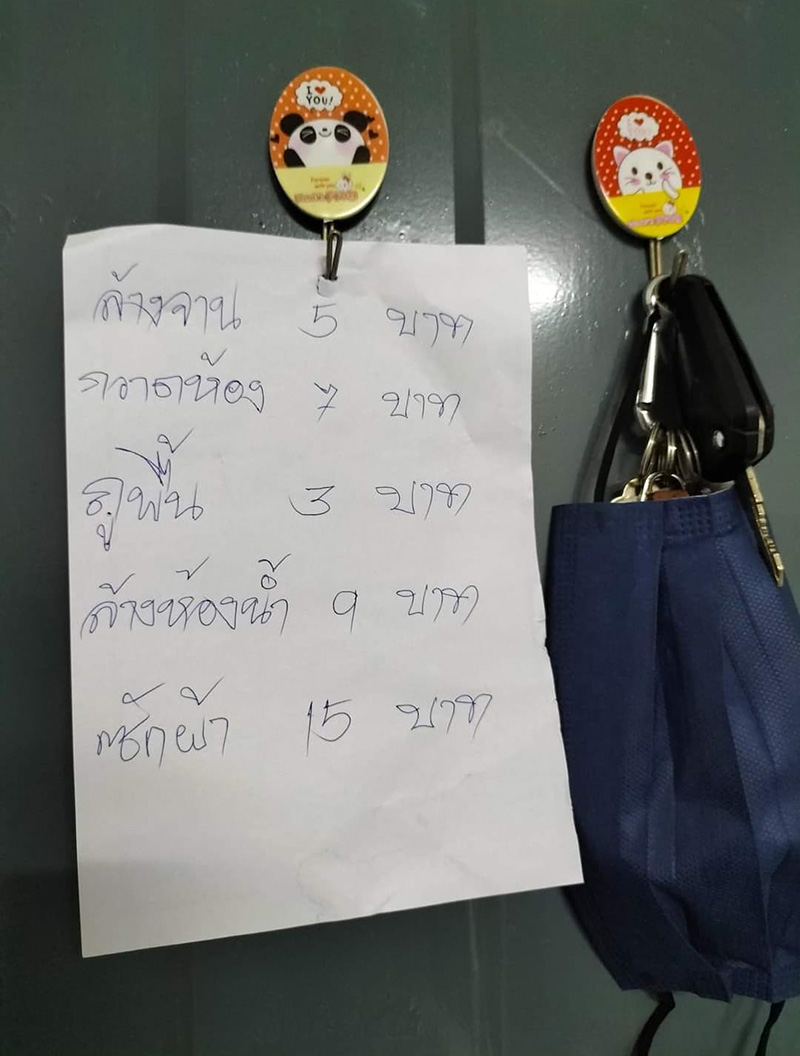 I ❤ YOU!
Forever with you
ล้างจาน 5 บาท
กวาดห้อง 7 บาท
ถูพื้น 3 บาท
ล้างห้องน้ำ 9 บาท
ซักผ้า 15 บาท